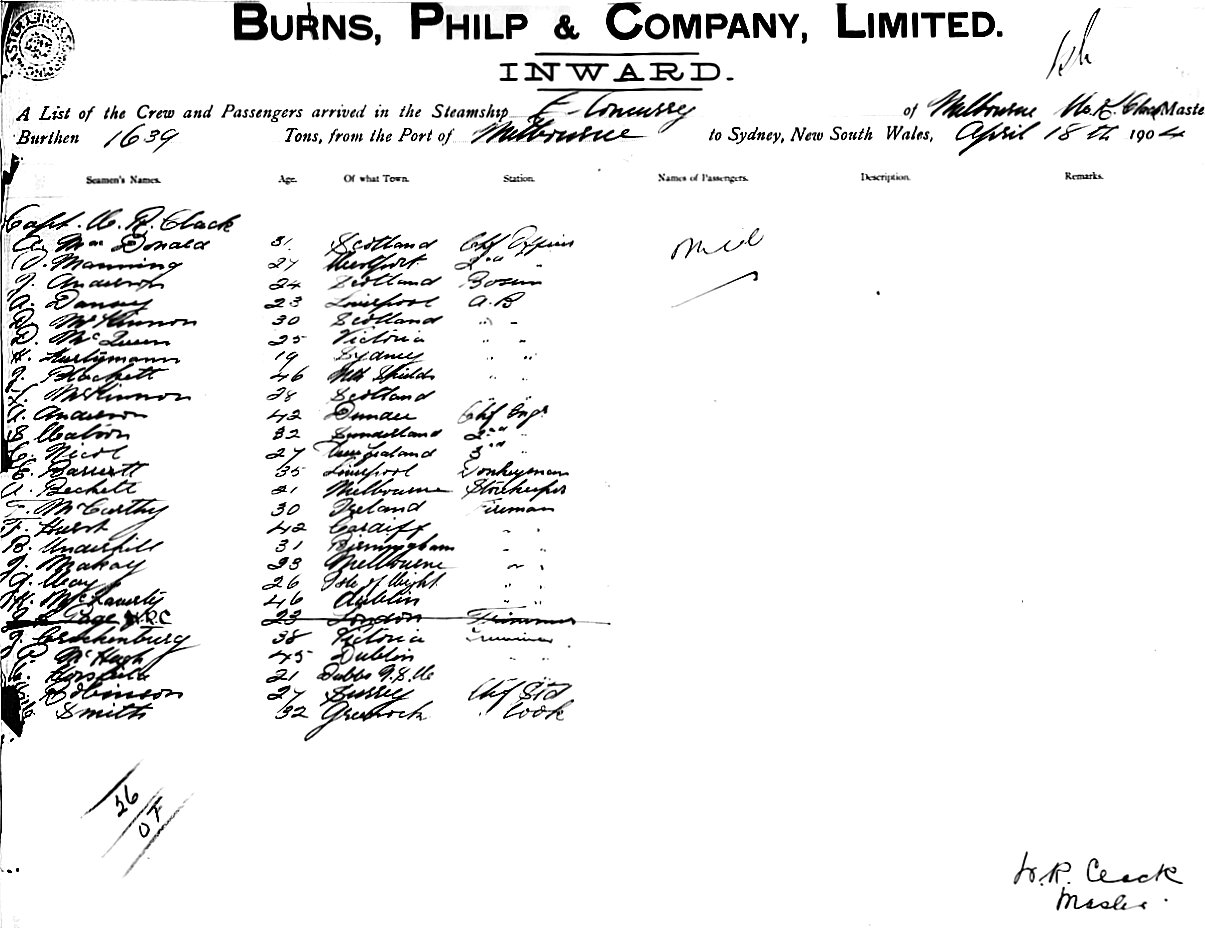 BURNS, PHILP & COMPANY, LIMITED.
INWARD.
A List of the Crew and Passengers arrived in the Steamship of Melbourne W. R. Clack Maste
Burthen 1639 Tons, from the Port of Melbourne to Sydney, New South Wales, April 18th 1904
Seamen's Names. Age. Of what Town. Station. Names of Passengers. Description. Remarks.
Capt. W. R. Clack
A. Mac Donald 31 Scotland Chf Officer
Manning 27 2nd "
J. Anderson 24 Scotland Bosun
A. 23 Liverpool A.B
D. McKinnon 30 Scotland " "
D. McQueen 25 Victoria " "
H. 19 Sydney " "
J. Blackett 46 Nth Shields " "
McKinnon 28 Scotland
A. Anderson 42 Dundee Chf Engr
S. Watson 32 Sunderland 2nd "
Nicol 27 New Zealand 3rd "
Barrett 35 Liverpool Donkeyman
A. Beckett 21 Melbourne Storekeeper
McCarthy 30 Ireland Fireman
F. Hurst 42 Cardiff " "
B. Underhill 31 Birmingham " "
J. Makay 23 Melbourne " "
May 26 Isle of Wight " "
McLaverty 46 Dublin " "
Page W.R.C 23 London Trimmer
J. 38 Victoria Trimmer
McHugh 45 Dublin " "
21 Dubbo N.S.W
Robinson 27 Surrey Chf Std
Smith 32 Greenock " Cook
Nil
26
07
W. R. Clack
Master.